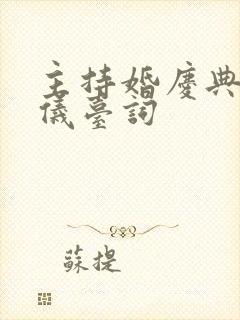 主持婚慶典
儀臺詞
蘇提